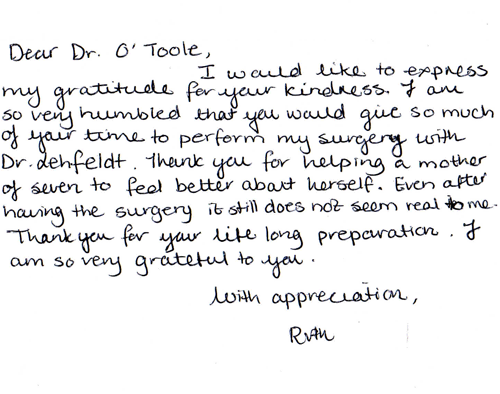 Dear Dr. O'Toole,
I would like to express
my gratitude for your kindness. I am
so very humbled that you would give so much
of your time to perform my surgery with
Dr. Lehfeldt. Thank you for helping a mother
of seven to feel better about herself. Even after
having the surgery it still does not seem real to me.
Thank you for your life long preparation. I
am so very grateful to you.
With appreciation,
Ruth